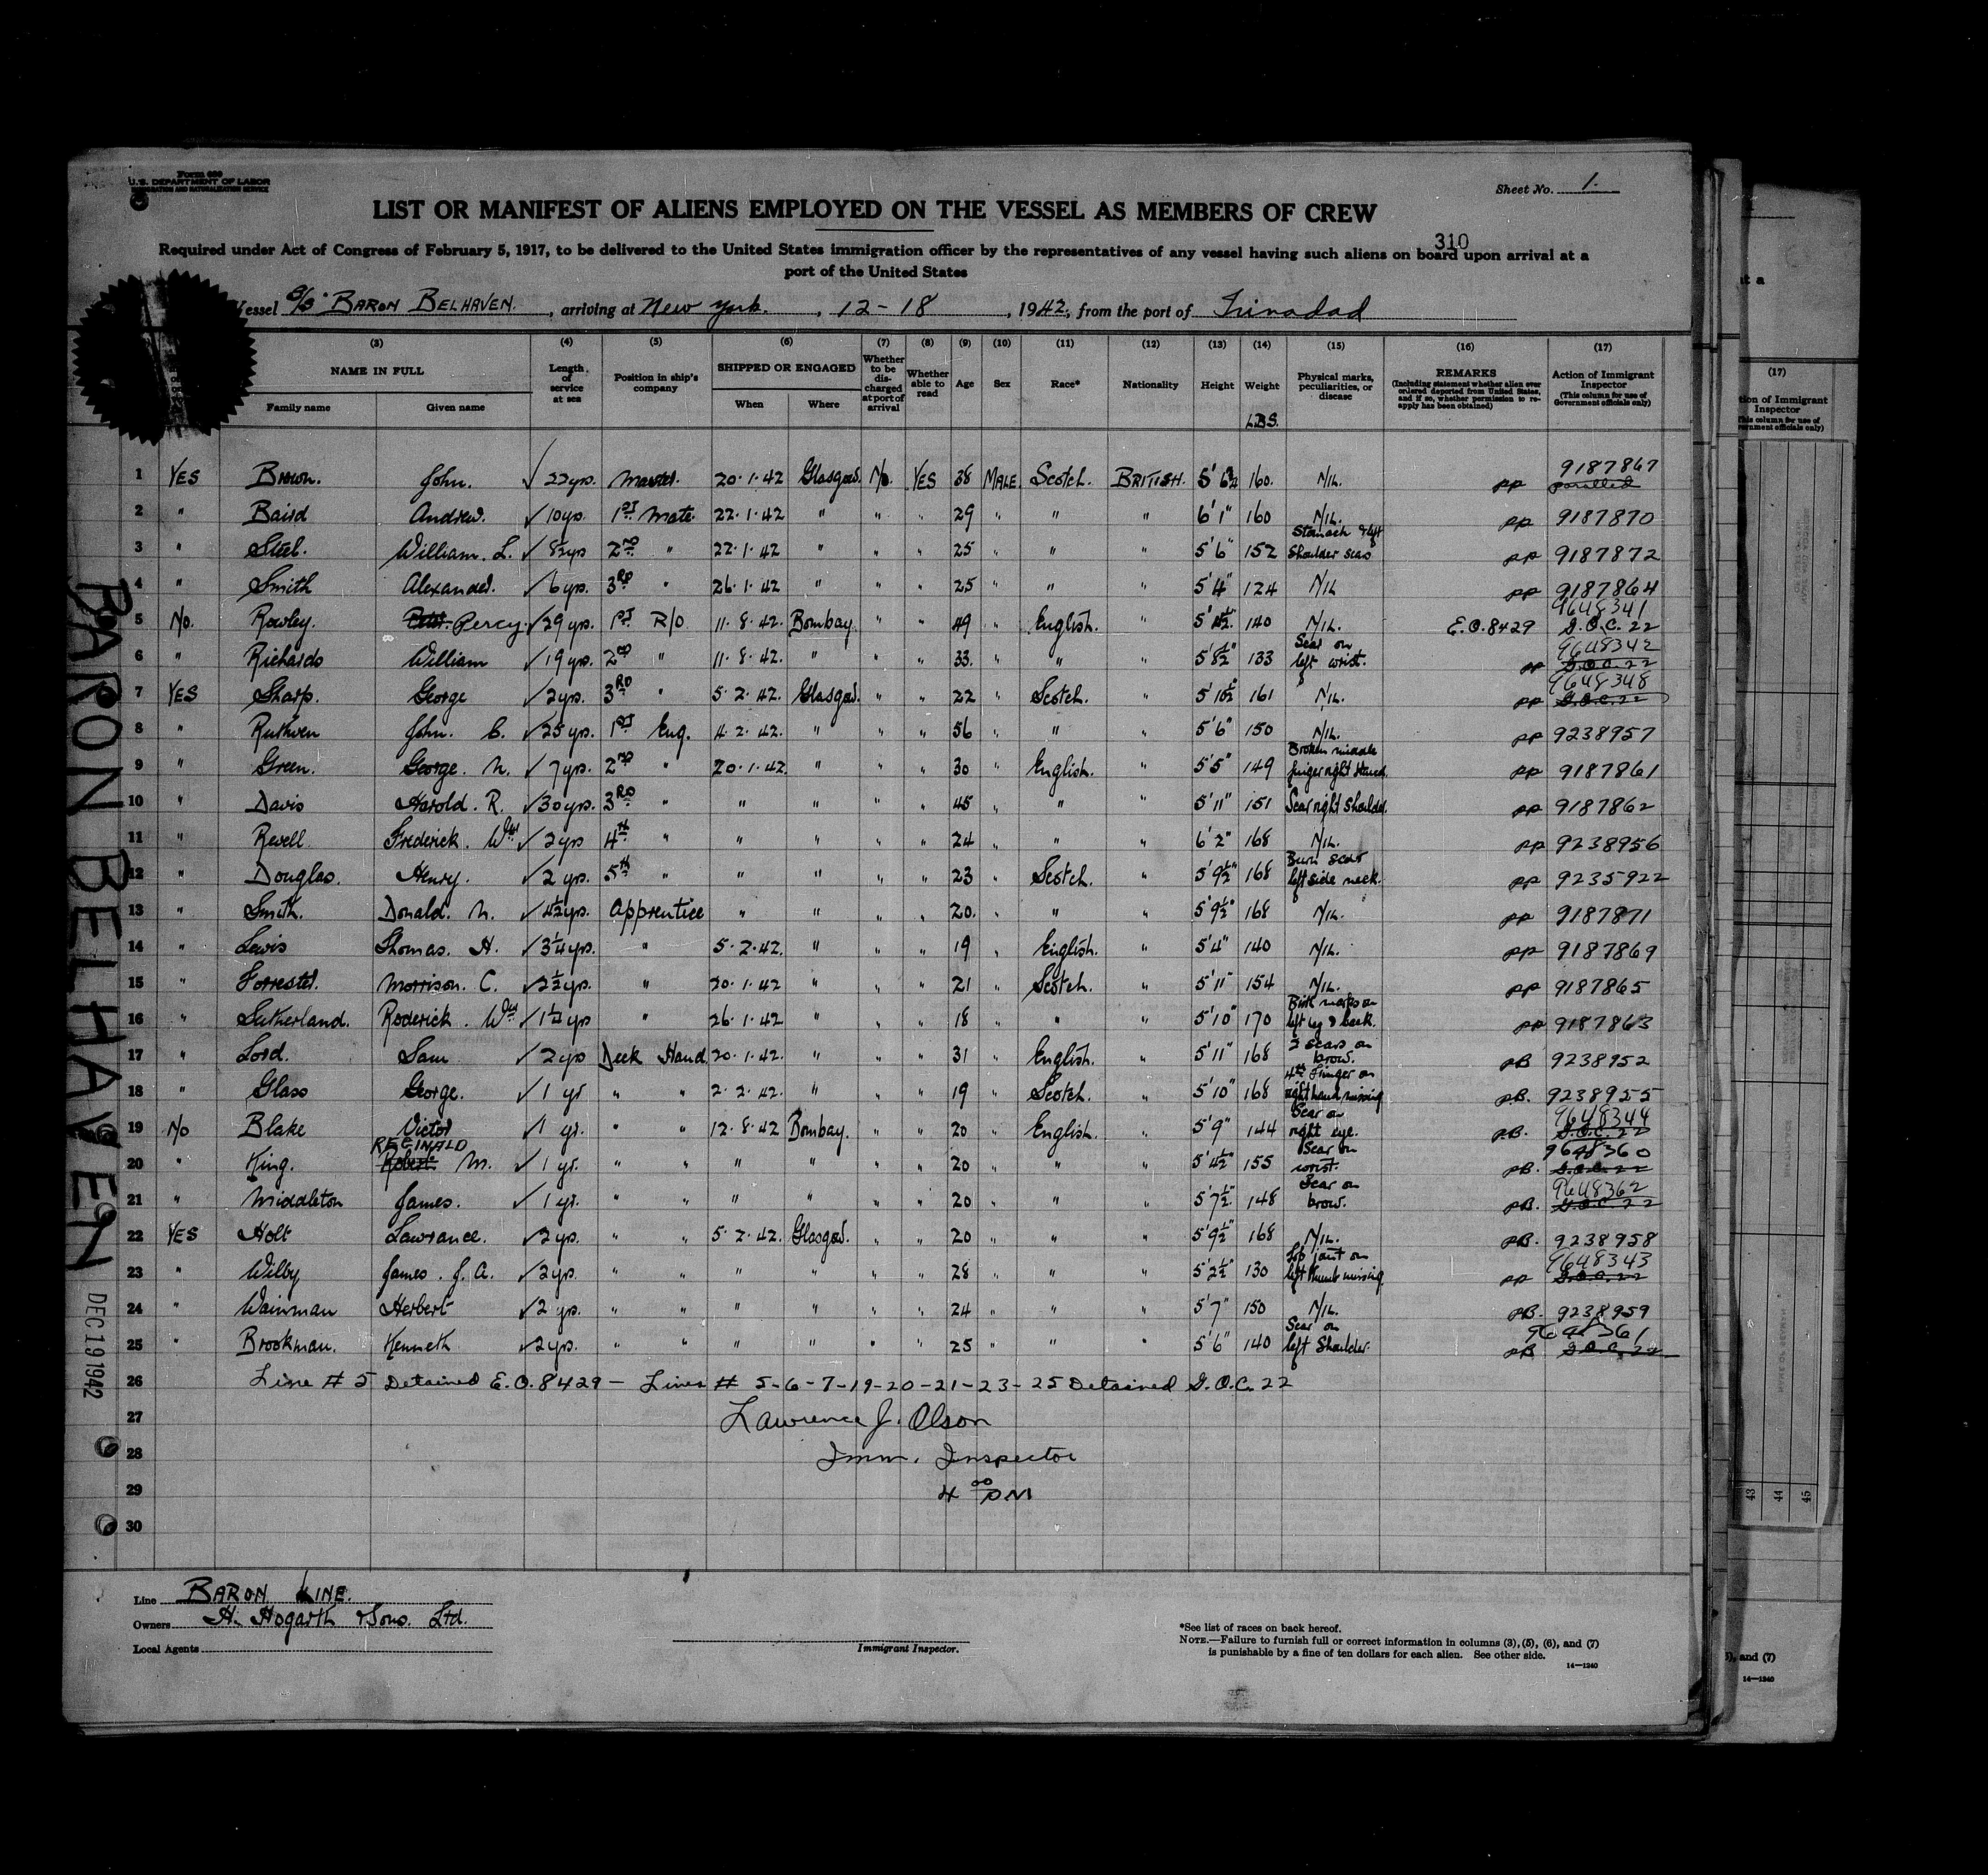 Form 680
U.S. DEPARTMENT OF LABOR
IMMIGRATION AND NATURALIZATION SERVICE
Sheet No. 1.
LIST OR MANIFEST OF ALIENS EMPLOYED ON THE VESSEL AS MEMBERS OF CREW
310
Required under Act of Congress of February 5, 1917, to be delivered to the United States immigration officer by the representatives of any vessel having such aliens on board upon arrival at a
port of the United States
Vessel S/S BARON BELHAVEN. , arriving at New York. , 12-18 , 1942, from the port of Trinadad
(3) (4) (5) (6) (7) (8) (9) (10) (11) (12) (13) (14) (15) (16) (17)
NAME IN FULL Family name Given name
Length of service at sea
Position in ship's company
SHIPPED OR ENGAGED When Where
Whether to be discharged at port of arrival
Whether able to read
Age Sex Race* Nationality Height Weight LBS.
Physical marks, peculiarities, or disease
REMARKS
(Including statement whether alien ever ordered deported from United States, and if so, whether permission to reapply has been obtained)
Action of Immigrant Inspector
(This column for use of Government officials only)
1 YES Brown. John. √ 22yrs. Master. 20.1.42 Glasgow. No. YES 38 MALE. Scotch. BRITISH. 5' 6½ 160. NIL. PP 9187867
2 " Baird Andrew. √ 10yrs. 1ST Mate. 22.1.42 " " " 29 " " " 6'1" 160 NIL. PP 9187870
3 " Steel. William. L. √ 8½yrs 2ND " 22.1.42 " " " 25 " " " 5'6" 152 Stomach & left shoulder scar PP 9187872
4 " Smith Alexander. √ 6yrs. 3RD " 26.1.42 " " " 25 " " " 5'4" 124 NIL PP 9187864
5 No. Rowley. Percy. √ 29 yrs. 1ST R/O 11.8.42. Bombay " " 49 " English. " 140 NIL. E.O.8429 9648341 G.O.C. 22
6 " Richards William √ 19yrs. 2ND " 11.8.42. " " " 33. " " " 5'8½" 133 Scar on left wrist. PP 9648342 G.O.C. 22
7 YES Sharp. George √ 2yrs. 3RD " 5.2.42. Glasgow. " " 22 " Scotch. " 5'10½" 161 NIL. PP 9648348 G.O.C. 22
8 " Ruthven John. C. √ 25yrs. 1ST Eng. 4.2.42. " " " 56 " " " 5'6" 150 NIL. PP 9238957
9 " Green. George. N. √ 7yrs. 2ND " 20.1.42. " " " 30 " English. " 5'5" 149 Broken middle finger right hand. PP 9187861
10 " Davis Harold. R. √ 30yrs. 3RD " " " " " 45 " " " 5'11" 151 Scar right shoulder. PP 9187862
11 " Revell Frederick. Wm √ 2yrs 4th " " " " " 24 " " " 6'2" 168 NIL. PP 9238956
12 " Douglas. Henry. √ 2 yrs. 5th " " " " " 23 " Scotch. " 5'9½" 168 Burn scar left side neck. PP 9235922
13 " Smith. Donald. N. √ 4½yrs. Apprentice " " " " 20. " " " 5'9½" 168 NIL. PP 9187871
14 " Lewis Thomas. H. √ 3¼yrs. " 5.2.42. " " " 19 " English. " 5'4" 140 NIL. PP 9187869
15 " Forrester. Morrison. C. √ 2½yrs. " 20.1.42 " " " 21 " Scotch. " 5'11" 154 NIL. PP 9187865
16 " Sutherland. Roderick. Wm √ 1¼yrs " 26.1.42 " " " 18 " " " 5'10" 170 Birth marks on left leg & back. PP 9187863
17 " Lord. Sam √ 2yrs Deck Hand. 20.1.42. " " " 31 " English. " 5'11" 168 2 scars on brow. PB 9238952
18 " Glass George. √ 1 yr " " 2.2.42. " " " 19 " Scotch. " 5'10" 168 4th Finger on right hand missing PB. 9238955
19 No Blake Victor √ 1 yr. " " 12.8.42 Bombay. " " 20 " English. " 5'9" 144 Scar on right eye. PB. 9648344 G.O.C. 22
20 " King. REGINALD Robert. M. √ 1 yr. " " " " " " 20 " " " 5'4½" 155 Scar on wrist. PB. 9648360 G.O.C. 22
21 " Middleton James. √ 1 yr. " " " " " " 20 " " " 5'7½" 148 Scar on brow. PB. 9648362 G.O.C. 22
22 YES Holt Lawrance. √ 2yrs. " " 5.2.42. Glasgow. " " 20 " " " 5'9½" 168 NIL. PB. 9238958
23 " Wilby James. J. A. √ 2yrs. " " " " " " 28 " " " 5'2½" 130 Top joint on left thumb missing PP 9648343 G.O.C. 22
24 " Wainman Herbert √ 2 yrs. " " " " " " 24 " " " 5'7" 150 NIL. PB. 9238959
25 " Brookman. Kenneth √ 2yrs. " " " " " " 25 " " " 5'6" 140 Scar on left Shoulder. PB 9648361 G.O.C. 22
26 Line # 5 Detained E.O.8429 - Lines # 5-6-7-19-20-21-23-25 Detained G.O.C. 22
27 Lawrence J. Olson
28 Imm. Inspector
29 4 00 PM
30
BARON BELHAVEN
DEC 19 1942
Line BARON LINE.
Owners H. Hogarth & Sons. Ltd.
Local Agents
Immigrant Inspector.
*See list of races on back hereof.
NOTE.—Failure to furnish full or correct information in columns (3), (5), (6), and (7)
is punishable by a fine of ten dollars for each alien. See other side.
14—1240
at a
(17)
tion of Immigrant
Inspector
This column for use of
vernment officials only)
43
44
45
), and (7)
14—1240